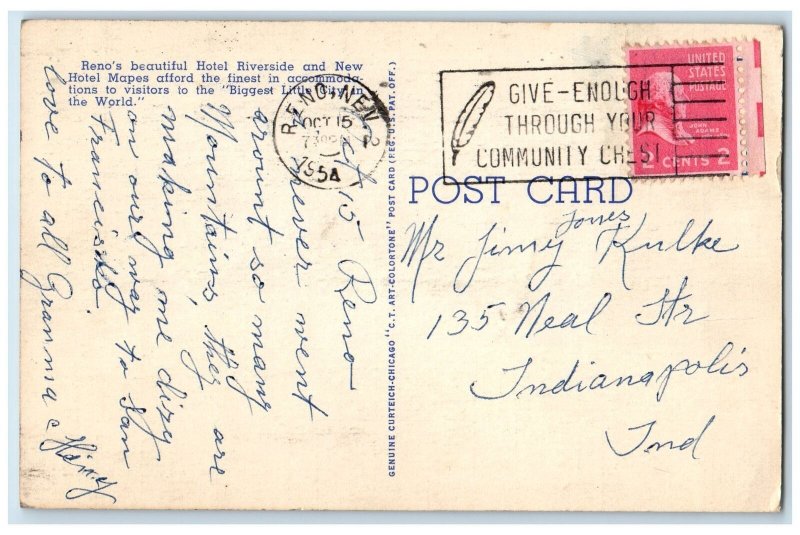 Reno's beautiful Hotel Riverside and New
Hotel Mapes afford the finest in accommoda-
tions to visitors to the "Biggest Little City in
the World."
RENO, NEV.
OCT 15
1954
GIVE-ENOUGH
THROUGH YOUR
COMMUNITY CHEST
UNITED
STATES
POSTAGE
JOHN
ADAMS
2 CENTS 2
POST CARD
GENUINE CURTEICH-CHICAGO "C.T. ART-COLORTONE" POST CARD (REG. U.S. PAT. OFF.)
Oct 15 Reno
never went
around so many
Mountains, they are
making me dizy
on our way to San
Francisko.
love to all Granma &
Jones
Mr Jimey Kulke
135 Neal Str
Indianapolis
Ind